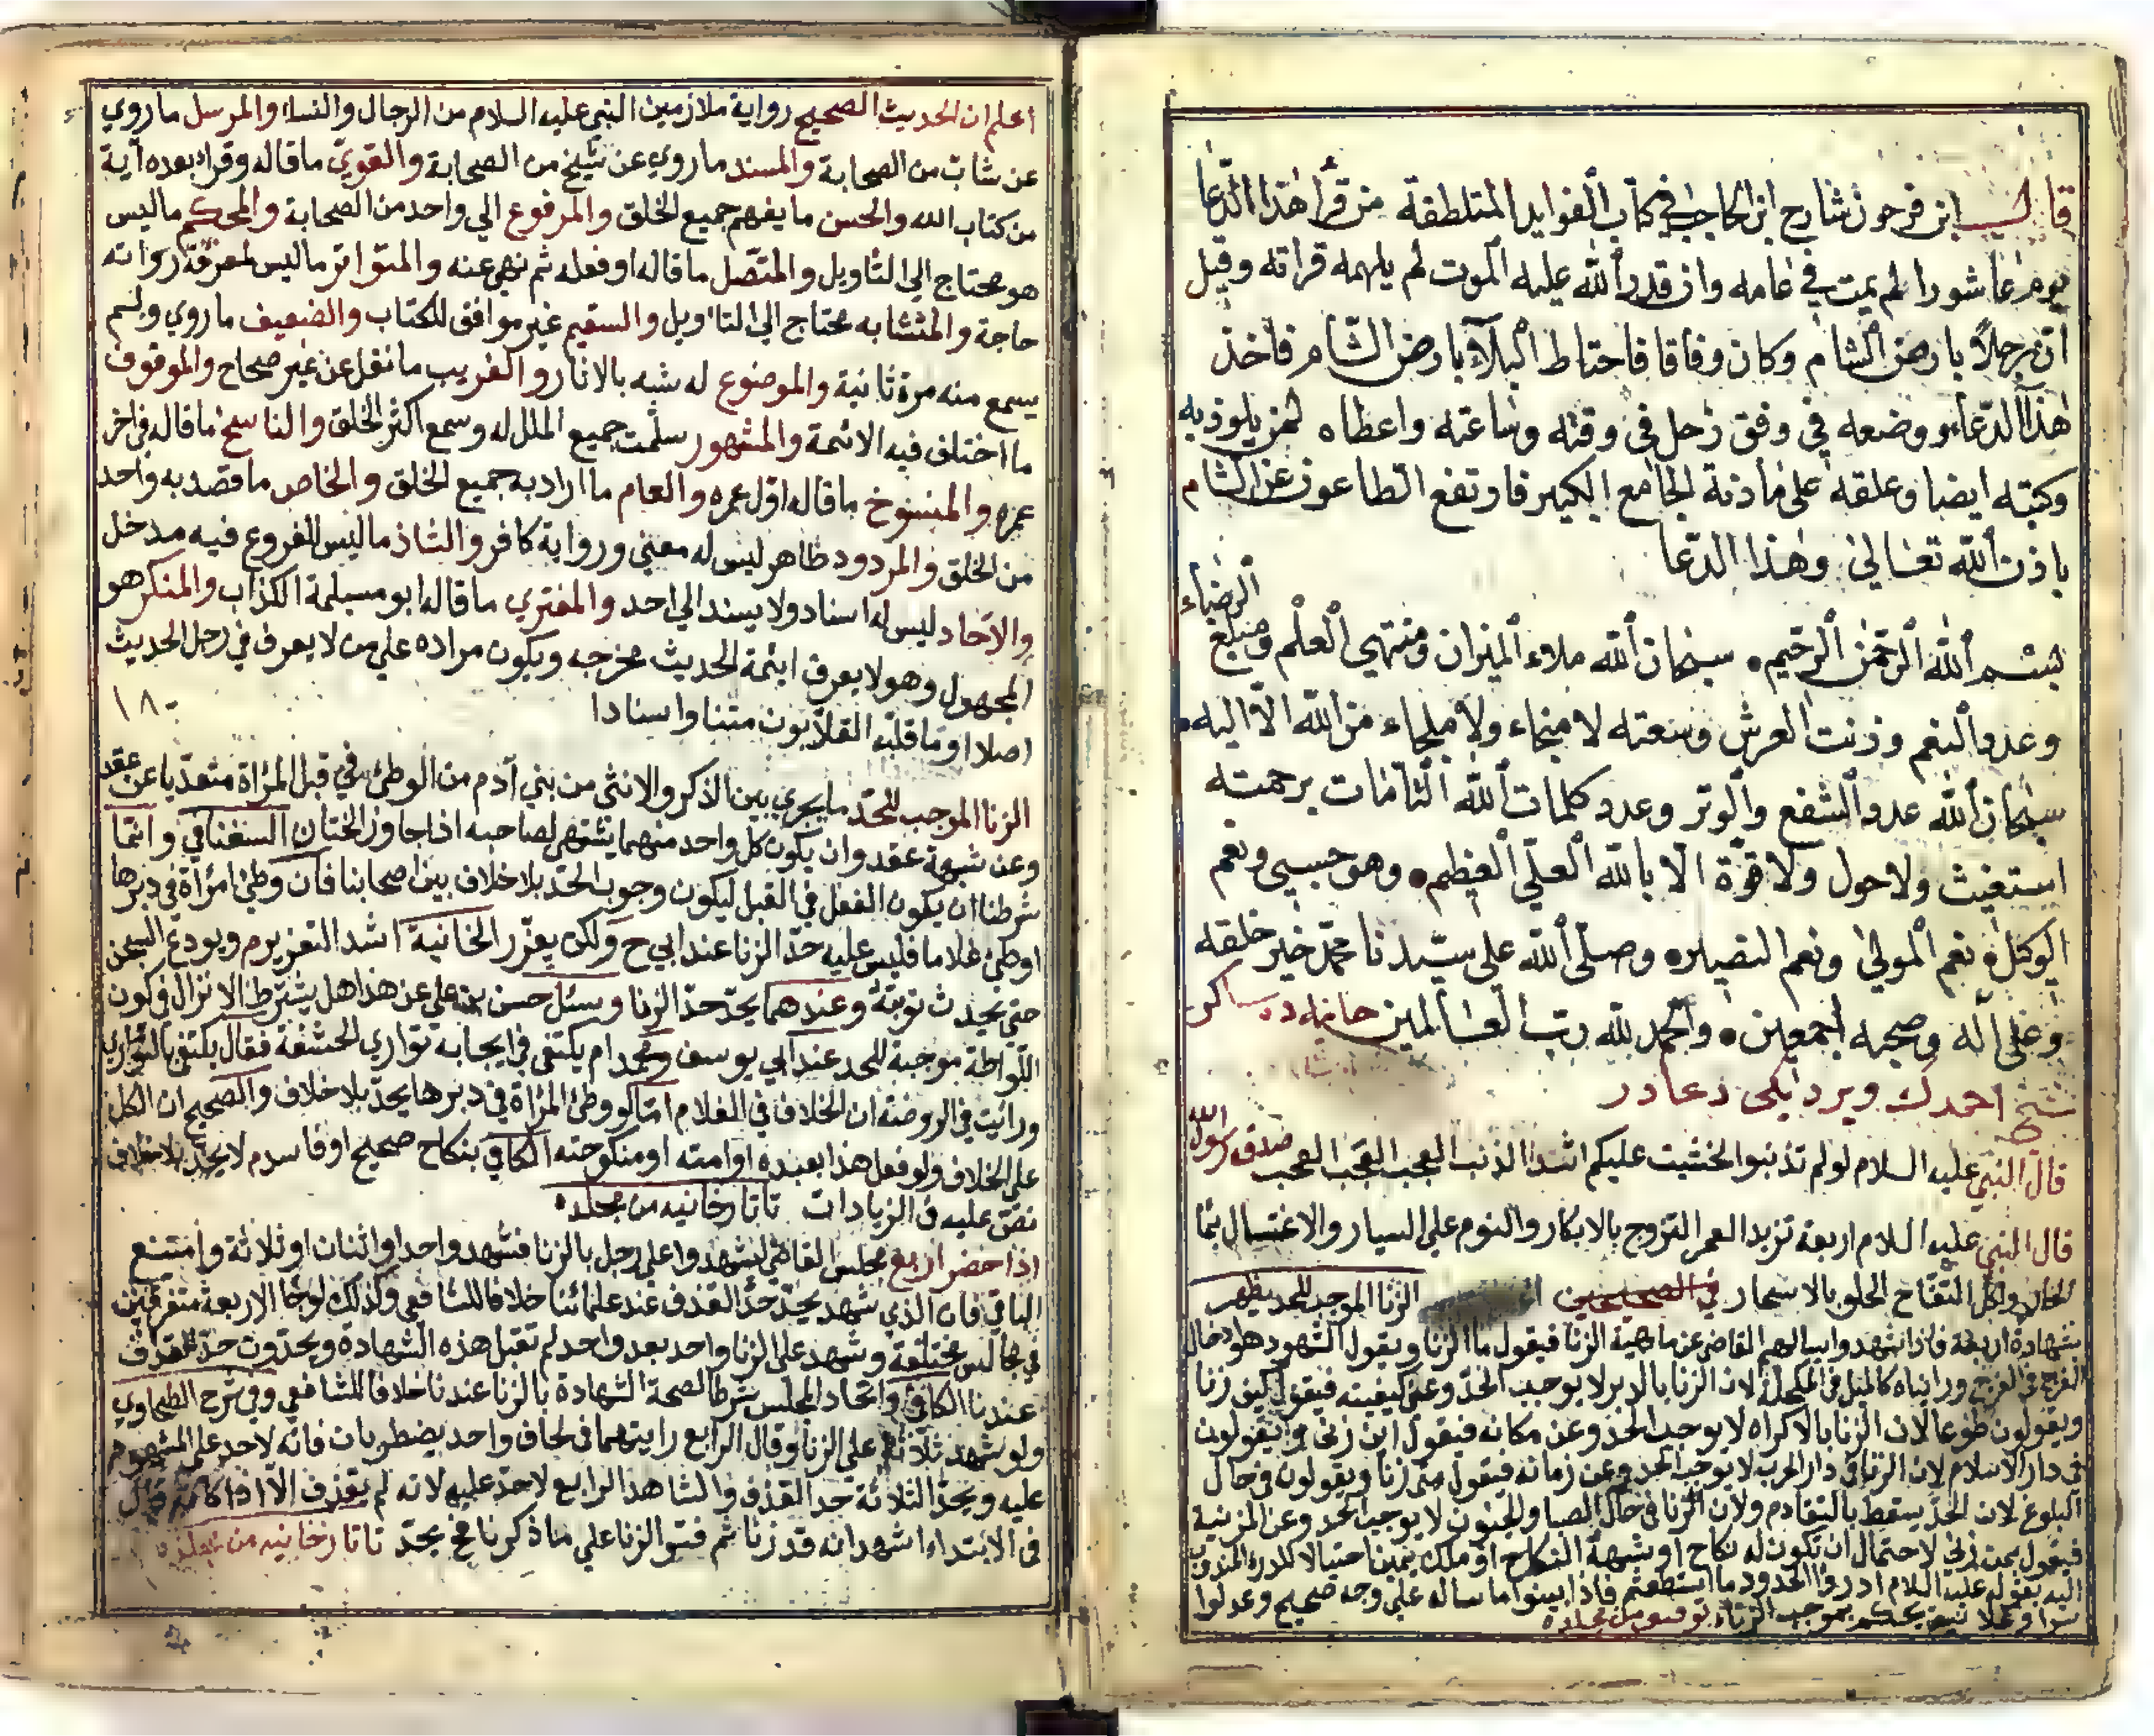 قال ابن فرحون شارح ابن الحاجب في كتاب الفوايد المتلطفة من قرأ هذا الدعا
يوم عاشورا لم يمت في عامه وان قدر الله عليه الموت لم يلهمه قراته وقيل
ان رجلا بارض الشام وكان وفاقا فاحتاط البلآء بارض الشام فاخذ
هذا الدعاء ووضعه في وفق زحل في وقته وساعته واعطاه لمن يلوذ به
وكتبه ايضا وعلقه على مأذنة الجامع الكبير فارتفع الطاعون عن الشام
باذن الله تعالى وهذا الدعا
بسم الله الرحمن الرحيم سبحان الله ملاء الميزان ومنتهى العلم ومبلغ الرضاء
وعدد النعم وزنت العرش وسعته لا منجاء ولا ملجاء من الله الا اليه
سبحان الله عدد الشفع والوتر وعدد كلمات الله التامات برحمته
استغيث ولا حول ولا قوة الا بالله العلي العظيم وهو حسبي ونعم
الوكيل نعم المولى ونعم النصير وصلى الله على سيدنا محمد خير خلقه
وعلى اله وصحبه اجمعين والحمد لله رب العالمين
شيخ احمدك ويرديكى دعادر
قال النبي عليه السلام لو لم تذنبوا لخشيت عليكم اشد الذنب العجب العجب العجب صدق رسول الله
قال النبي عليه السلام اربعة تزيد العمر التزوج بالابكار والنوم على اليسار والاغتسال بماء
واكل التفاح الحلو بالاسحار الزنا الموجب للحد يظهر
بشهادة اربعة فاذا شهدوا يسالهم القاضي عن ماهية الزنا فيقول ما الزنا ويقول الشهود هو ادخال
الفرج في الفرج ورايناه كالميل في المكحلة لان الزنا بالدبر لا يوجب الحد وعن كيفيته فيقول كيف زنا
ويقولون طوعا لان الزنا بالاكراه لا يوجب الحد وعن مكانه فيقول اين زنى ويقولون
في دار الاسلام لان الزنا في دار الحرب لا يوجب الحد وعن زمانه فيقول متى زنا ويقولون في حال
البلوغ لان الحد يسقط بالتقادم ولان الزنا في حال الصبا والجنون لا يوجب الحد وعن المزنية
فيقول بمن زنى لاحتمال ان تكون له نكاح او شبهة النكاح او ملك يمين احتيالا للدرء المندوب
اليه بقوله عليه السلام ادروا الحدود ما استطعتم فاذا بينوا ما ساله على وجه صحيح وعدلوا
سرا وعلانية يحكم بموجب الزنا
اعلم ان الحديث الصحيح رواية ملازمين النبي عليه السلام من الرجال والنساء والمرسل ما روي
عن شاب من الصحابة والمسند ما روي عن شيخ من الصحابة والقوي ما قاله وقرا بعده آية
من كتاب الله والحسن ما يفهم جميع الخلق والمرفوع الي واحد من الصحابة والمحكم ما ليس
هو محتاج الي التاويل والمتصل ما قاله او فعله ثم نهى عنه والمتواتر ما ليس لمعرفة رواته
حاجة والمتشابه محتاج الي التاويل والسقيم غير موافق للكتاب والضعيف ما روي ولم
يسمع منه مرة ثانية والموضوع له شبه بالاثار والغريب ما نقل عن غير صحاح والموقوف
ما اختلف فيه الائمة والمشهور سلمت جميع الملل له وسمع اكثر الخلق والناسخ ما قاله في اخر
عمره والمنسوخ ما قاله اول عمره والعام ما اراد به جميع الخلق والخاص ما قصد به واحد
من الخلق والمردود ظاهر ليس له معنى ورواية كافر والشاذ ما ليس للفروع فيه مدخل
والآحاد ليس له اسناد ولا يسند الي احد والمفتري ما قاله ابو مسيلمة الكذاب والمنكر هو
المجهول وهو لا يعرف ايئمة الحديث مخرجه ويكون مراده علي من لا يعرف في رجل الحديث
اصلا او ما قلبه القلابون متنا واسنادا ١٨٠
الزنا الموجب للحد ما يجري بين الذكر والانثى من بني آدم من الوطئ في قبل المرأة متعديا عن عقد
وعن شبهة عقد وان يكون كل واحد منهما يشتهي لصاحبه اذا جاوز الختان السغناقي وانما
شرطنا ان يكون الفعل في القبل ليكون وجوب الحد بلا خلاف بين اصحابنا فان وطئ امرأة في دبرها
او وطئ غلاما فليس عليه حد الزنا عند ابي ح ولكن يعزر الخانية اشد التعزير وم ويودع السجن
حتى يحدث توبة وعندهما يحد حد الزنا وسئل حسن بن علي عن هذا هل يشترط الانزال في كون
اللواطة موجبة للحد عند ابي يوسف ومحمد ام يكتفى في ايجابه تواري الحشفة فقال يكتفى بالتواري
ورايت في الروضة ان الخلاف في الغلام اما لو وطئ المرأة في دبرها يحد بلا خلاف والصحيح ان الكل
على الخلاف ولو فعل هذا بعبده او امته او منكوحته الكافي بنكاح صحيح او فاسد م لا يحد بلا خلاف
نص عليه في الزيادات تاتارخانيه من مجلد
اذا حضر اربع مجلس القاضي ليشهدوا على رجل بالزنا فشهد واحد او اثنان او ثلاثة وامتنع
الباقي فان الذي شهد يحد حد القذف عند علمائنا خلافا للشافعي وكذلك لو جا الاربعة متفرقين
في مجالس مختلفة وشهد على الزنا واحد بعد واحد لم تقبل هذه الشهادة ويحدون حد القذف
عندنا الكافي واتحاد المجلس شرط لصحة الشهادة بالزنا عندنا خلافا للشافعي وفي شرح الطحاوي
ولو شهد ثلاثة على الزنا وقال الرابع رايتهما في لحاف واحد يضطربان فانه لا حد على المشهود
عليه ويحد الثلاثة حد القذف والشاهد الرابع لا حد عليه لانه لم يقذف الا اذا كان قال
في الابتداء اشهد انه قد زنا ثم فسر الزنا علي ما ذكرنا فح يحد تاتارخانيه من مجلد